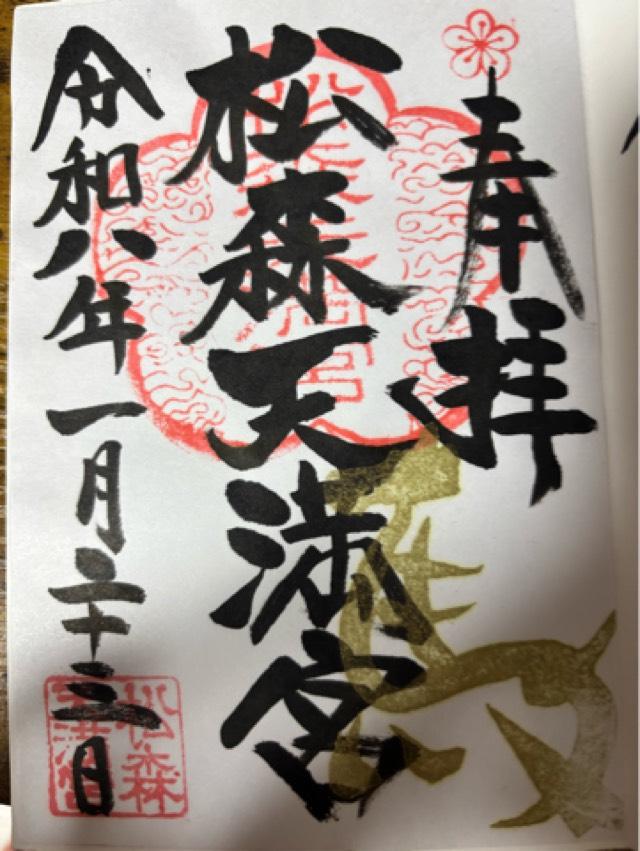 奉拝
松森天満宮
令和八年一月二十三日
松森
天満宮